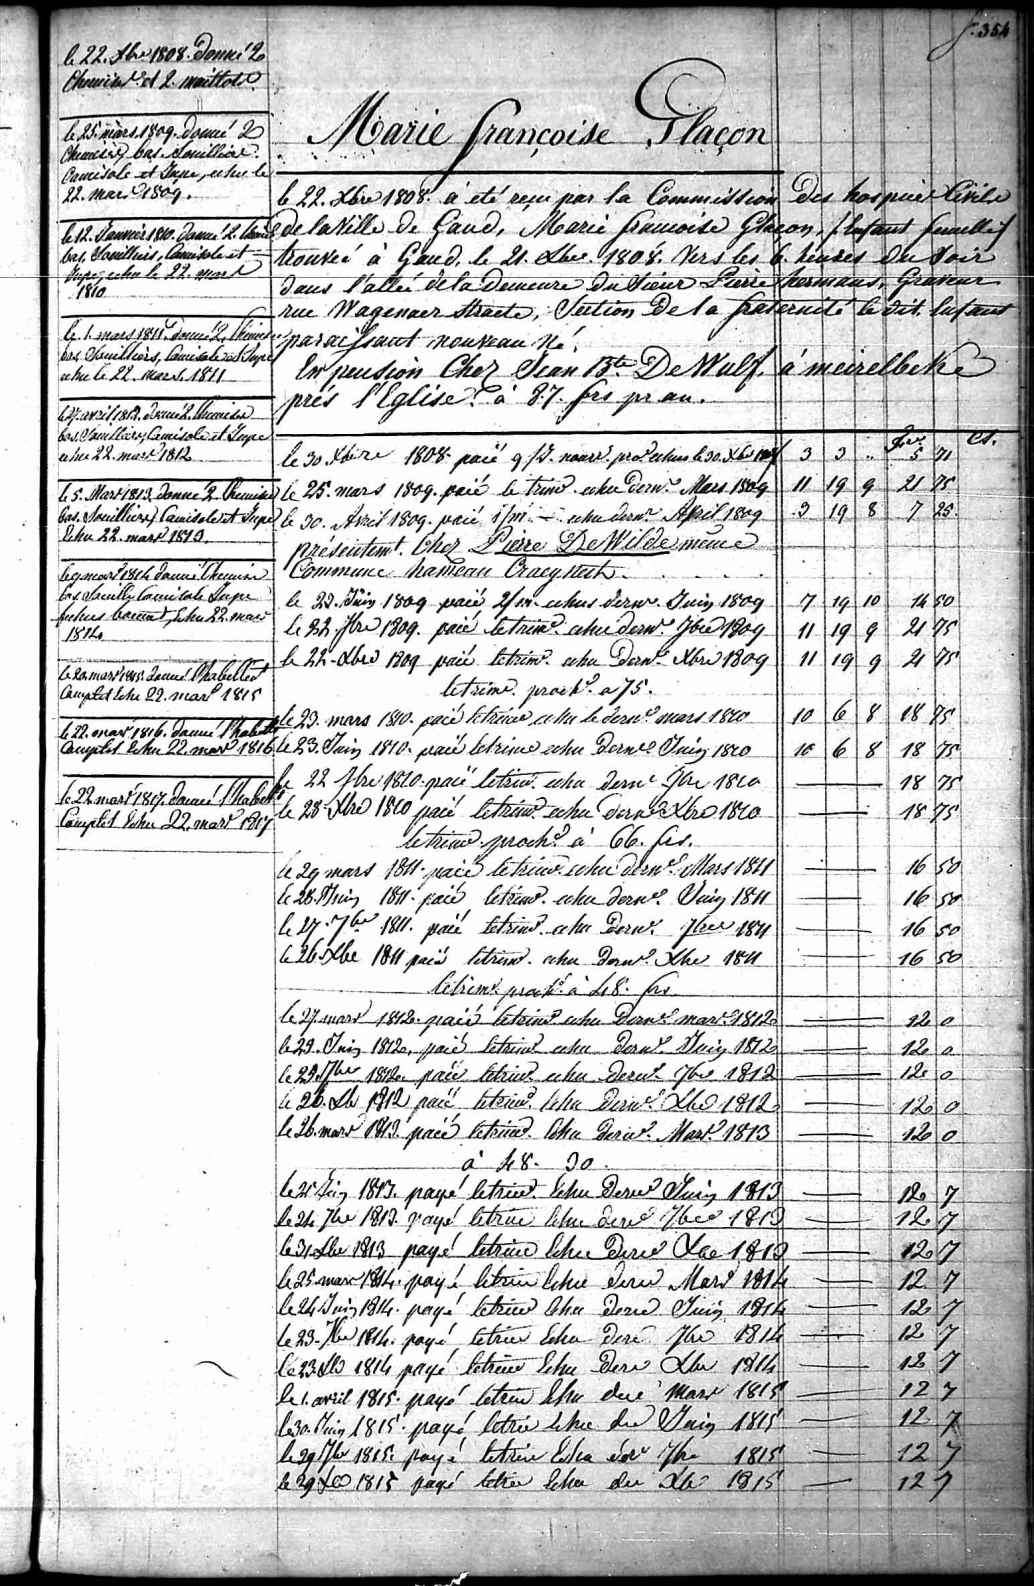 f. 354
le 22. Xbre 1808. Donné 2
Chemises et 2. maillots.
le 25. mars 1809. donné 2
Chemises, bas Souilliers.
Camisole et Jupe, echu le
22. mars 1809.
le 12. Janvier 1810. donné 2. Chemises
bas, Souilliers, Camisole et
Jupe, echu le 22. mars
1810
le 1. mars 1811. donné 2. Chemises
bas Souilliers, Camisole et Jupe
echu le 22. mars 1811
le 27. avril 1812. donné 2. Chemises
bas Souilliers, Camisole et Jupe
echu 22. mars 1812
le 5. Mars 1813. donné 2 Chemises
bas. Souilliers, Camisole et Jupe
Echu 22. mars 1813.
le 9 mars 1814 donné Chemise
bas Souill. Camisole Jupe
fichus bonnet, Echu 22. mars
1814
le 20. mars 1815. donné l'habillet
Complet Echu 22. mars 1815
le 22. mars 1816. donné l'habille
Complet Echu 22. mars 1816
le 22 mars 1817. donné l'habille
Complet Echu 22. mars 1817
Marie françoise Glaçon
le 22. Xbre 1808. à eté reçu par la Commission Des hospices Civils
de la Ville de Gand, Marie francoise Glaçon, / Enfant femelle /
trouvée à Gand, le 21. Xbre. 1808. Vers les 6. heures du Soir
dans l'allée de la demeure du Sieur Pierre hermans, Graveur
rue Wagenaer Straete, Section De la fraternité le dit. Enfant
paraissant nouveau Né.
En pension Chez Jean Bte De Wulf. à meirelbeke
prés l'Eglise. à 87. frs pr an.
frs cs.
le 30. Xbre 1808 paié 9 /J. nourr. pro. echus le 30. Xbre 1808 3 3 .. 5 71
le 25. mars 1809. paié le trim. echu dern. Mars 1809 11 19 9 21 75
le 30. Avril 1809. paié 1/m. echu dern. April 1809 3 19 8 7 25.
présentemt. Chez Pierre De Wilde même
Commune hameau
le 23. Juin 1809 paié 2/m. echus dern. Juin 1809 7 19 10 14 50
le 22. 7bre 1809. paié le trim. echu dern. 7bre 1809 11 19 9 21 75
le 22. Xbre 1809 paié le trim. echu Dern. Xbre 1809 11 19 9 21 75
le trim. proch. a 75.
le 23. mars 1810. paié le trim echu le dern. mars 1810 10 6 8 18 75
le 23. Juin 1810. paié le trim echu Dern. Juin 1810 10 6 8 18 75
le 22 7bre 1810. paié le trim. echu dern. 7bre 1810 18 75
le 28. Xbre 1810 paié le trim. echu dern. Xbre 1810 18 75
le trim. proch. à 66. frs.
le 29 mars 1811. paié le trim. echu dern. Mars 1811 16 50
le 28. Juin 1811. paié le trim. echu dern. Juin 1811 16 50
le 27. 7bre 1811. paié le trim. echu Dern. 7bre 1811 16 50
le 26. Xbe 1811 paié le trim. echu Dern. Xbe 1811 16 50
le trim. proch. à 48. frs
le 27 mars 1812. paié le trim. echu Dern. mars. 1812 12 0
le 29. Juin 1812. paié le trim. echu Dern. Juin 1812 12 0
le 29. 7bre 1812. paié le trim. echu dern. 7bre 1812 12 0
le 26. Xb 1812 paié le trim. Echu Dern. Xbre 1812 12 0
le 26. mars 1813. paié le trim. Echu dern. Mars. 1813 12 0
à 48. 30.
le 25 Juin 1813. payé le trim. Echu Dern Juin 1813 12 7
le 24 7bre 1813. payé le trim Echu dern 7bre 1813 12 7
le 31 Xbre 1813 payé le trim Echu Dern Xbe 1813 12 7
le 25 mars 1814. payé le trim Echu dern Mars 1814 12 7
le 24 Juin 1814. payé le trim Echu dern Juin 1814 12 7
le 23. 7bre 1814. payé le trim Echu der 7bre 1814 12 7
le 23 Xb 1814 payé le trim Echu Der Xbre 1814 12 7
le 1. avril 1815. payé le trim Echu der mars 1815 12 7
le 30. Juin 1815. payé le trim Echu der Juin 1815 12 7
le 29 7bre 1815. payé le trim Echu der 7bre 1815 12 7
le 29 Xb 1815 payé le trim Echu der Xb 1815 12 7